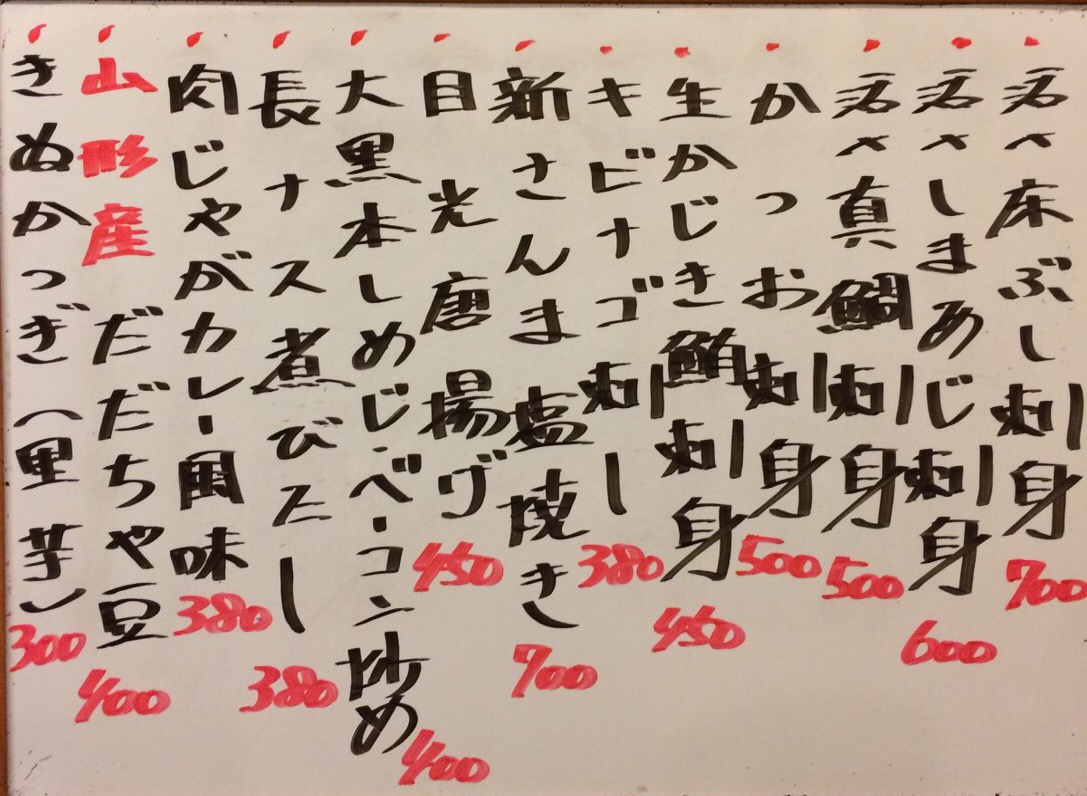 活〆床ぶし刺身 700
活〆しまあじ刺身 600
活〆真鯛刺身 500
かつお刺身 500
生かじき鮪刺身 450
キビナゴ刺し 380
新さんま塩焼き 700
目光唐揚げ 450
大黒本しめじ・ベーコン炒め 400
長ナス煮びたし 380
肉じゃがカレー風味 380
山形産だだちゃ豆 400
きぬかつぎ（里芋） 300